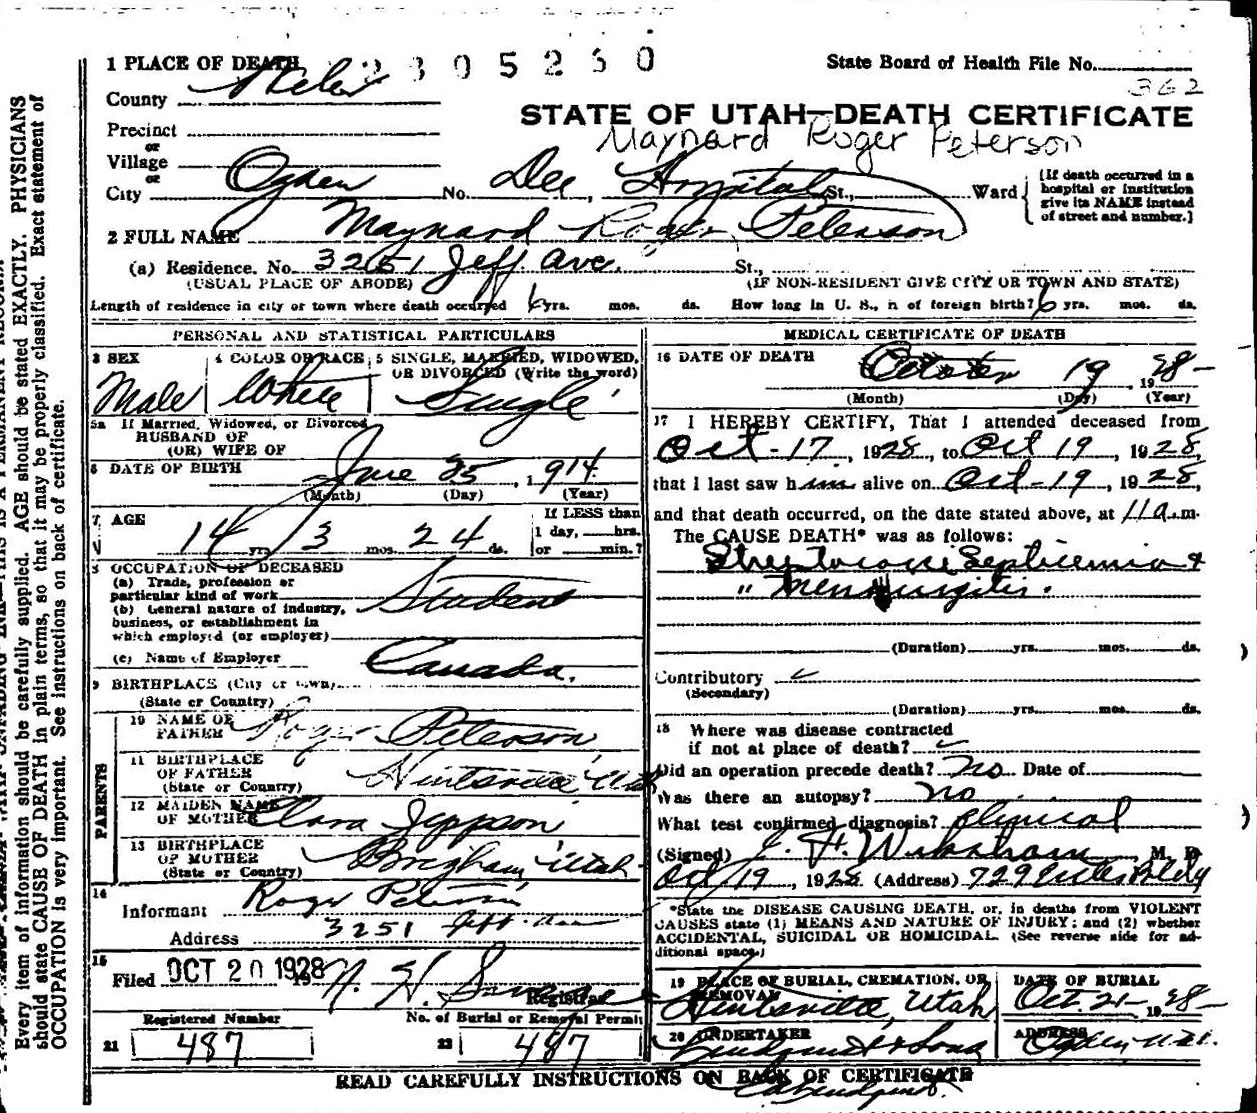 Every item of information should be carefully supplied. AGE should be stated EXACTLY. PHYSICIANS
should state CAUSE OF DEATH in plain terms, so that it may be properly classified. Exact statement of
OCCUPATION is very important. See instructions on back of certificate.
1 PLACE OF DEATH
State Board of Health File No.
362
County Weber
STATE OF UTAH—DEATH CERTIFICATE
Precinct
Maynard Roger Peterson
or
Village
or
City Ogden No. Dee Hospital St., Ward
[If death occurred in a
hospital or institution
give its NAME instead
of street and number.]
2 FULL NAME Maynard Roger Peterson
(a) Residence. No. 3251 Jeff. Ave. St.,
(USUAL PLACE OF ABODE) (IF NON-RESIDENT GIVE CITY OR TOWN AND STATE)
Length of residence in city or town where death occurred 6 yrs. mos. ds. How long in U. S., if of foreign birth? 6 yrs. mos. ds.
PERSONAL AND STATISTICAL PARTICULARS
3 SEX
Male
4 COLOR OR RACE
White
5 SINGLE, MARRIED, WIDOWED,
OR DIVORCED (Write the word)
Single
5a If Married, Widowed, or Divorced
HUSBAND OF
(OR) WIFE OF
6 DATE OF BIRTH June 25, 1914
(Month) (Day) (Year)
7 AGE 14 yrs 3 mos. 24 ds.
If LESS than
1 day, hrs.
or min.?
8 OCCUPATION OF DECEASED
(a) Trade, profession or
particular kind of work Student
(b) General nature of industry,
business, or establishment in
which employed (or employer)
(c) Name of Employer
9 BIRTHPLACE (City or town) Canada.
(State or Country)
PARENTS
10 NAME OF
FATHER Roger Peterson
11 BIRTHPLACE
OF FATHER Huntsville Utah
(State or Country)
12 MAIDEN NAME
OF MOTHER Clara Jeppson
13 BIRTHPLACE
OF MOTHER Brigham, Utah
(State or Country)
14
Informant Roger Peterson
Address 3251 Jeff. Ave
15
Filed OCT 20 1928
Registrar
Registered Number
21 487
No. of Burial or Removal Permit
22 487
MEDICAL CERTIFICATE OF DEATH
16 DATE OF DEATH
October 19, 1928
(Month) (Day) (Year)
17 I HEREBY CERTIFY, That I attended deceased from
Oct-17, 1928, to Oct 19, 1928,
that I last saw him alive on Oct-19, 1928,
and that death occurred, on the date stated above, at 11 a.m.
The CAUSE DEATH* was as follows:
Streptococci Septicemia &
" Meningitis.
(Duration) yrs. mos. ds.
Contributory
(Secondary)
(Duration) yrs. mos. ds.
18 Where was disease contracted
if not at place of death?
Did an operation precede death? no Date of
Was there an autopsy? no
What test confirmed diagnosis? Clinical
(Signed) M. D.
Oct 19, 1928 (Address) 729
*State the DISEASE CAUSING DEATH, or, in deaths from VIOLENT
CAUSES state (1) MEANS AND NATURE OF INJURY; and (2) whether
ACCIDENTAL, SUICIDAL OR HOMICIDAL. (See reverse side for ad-
ditional space.)
19 PLACE OF BURIAL, CREMATION, OR
REMOVAL
Huntsville, Utah
DATE OF BURIAL
Oct. 21-1928-
20 UNDERTAKER
Lindquist & Sons
ADDRESS
Ogden Utah.
READ CAREFULLY INSTRUCTIONS ON BACK OF CERTIFICATE